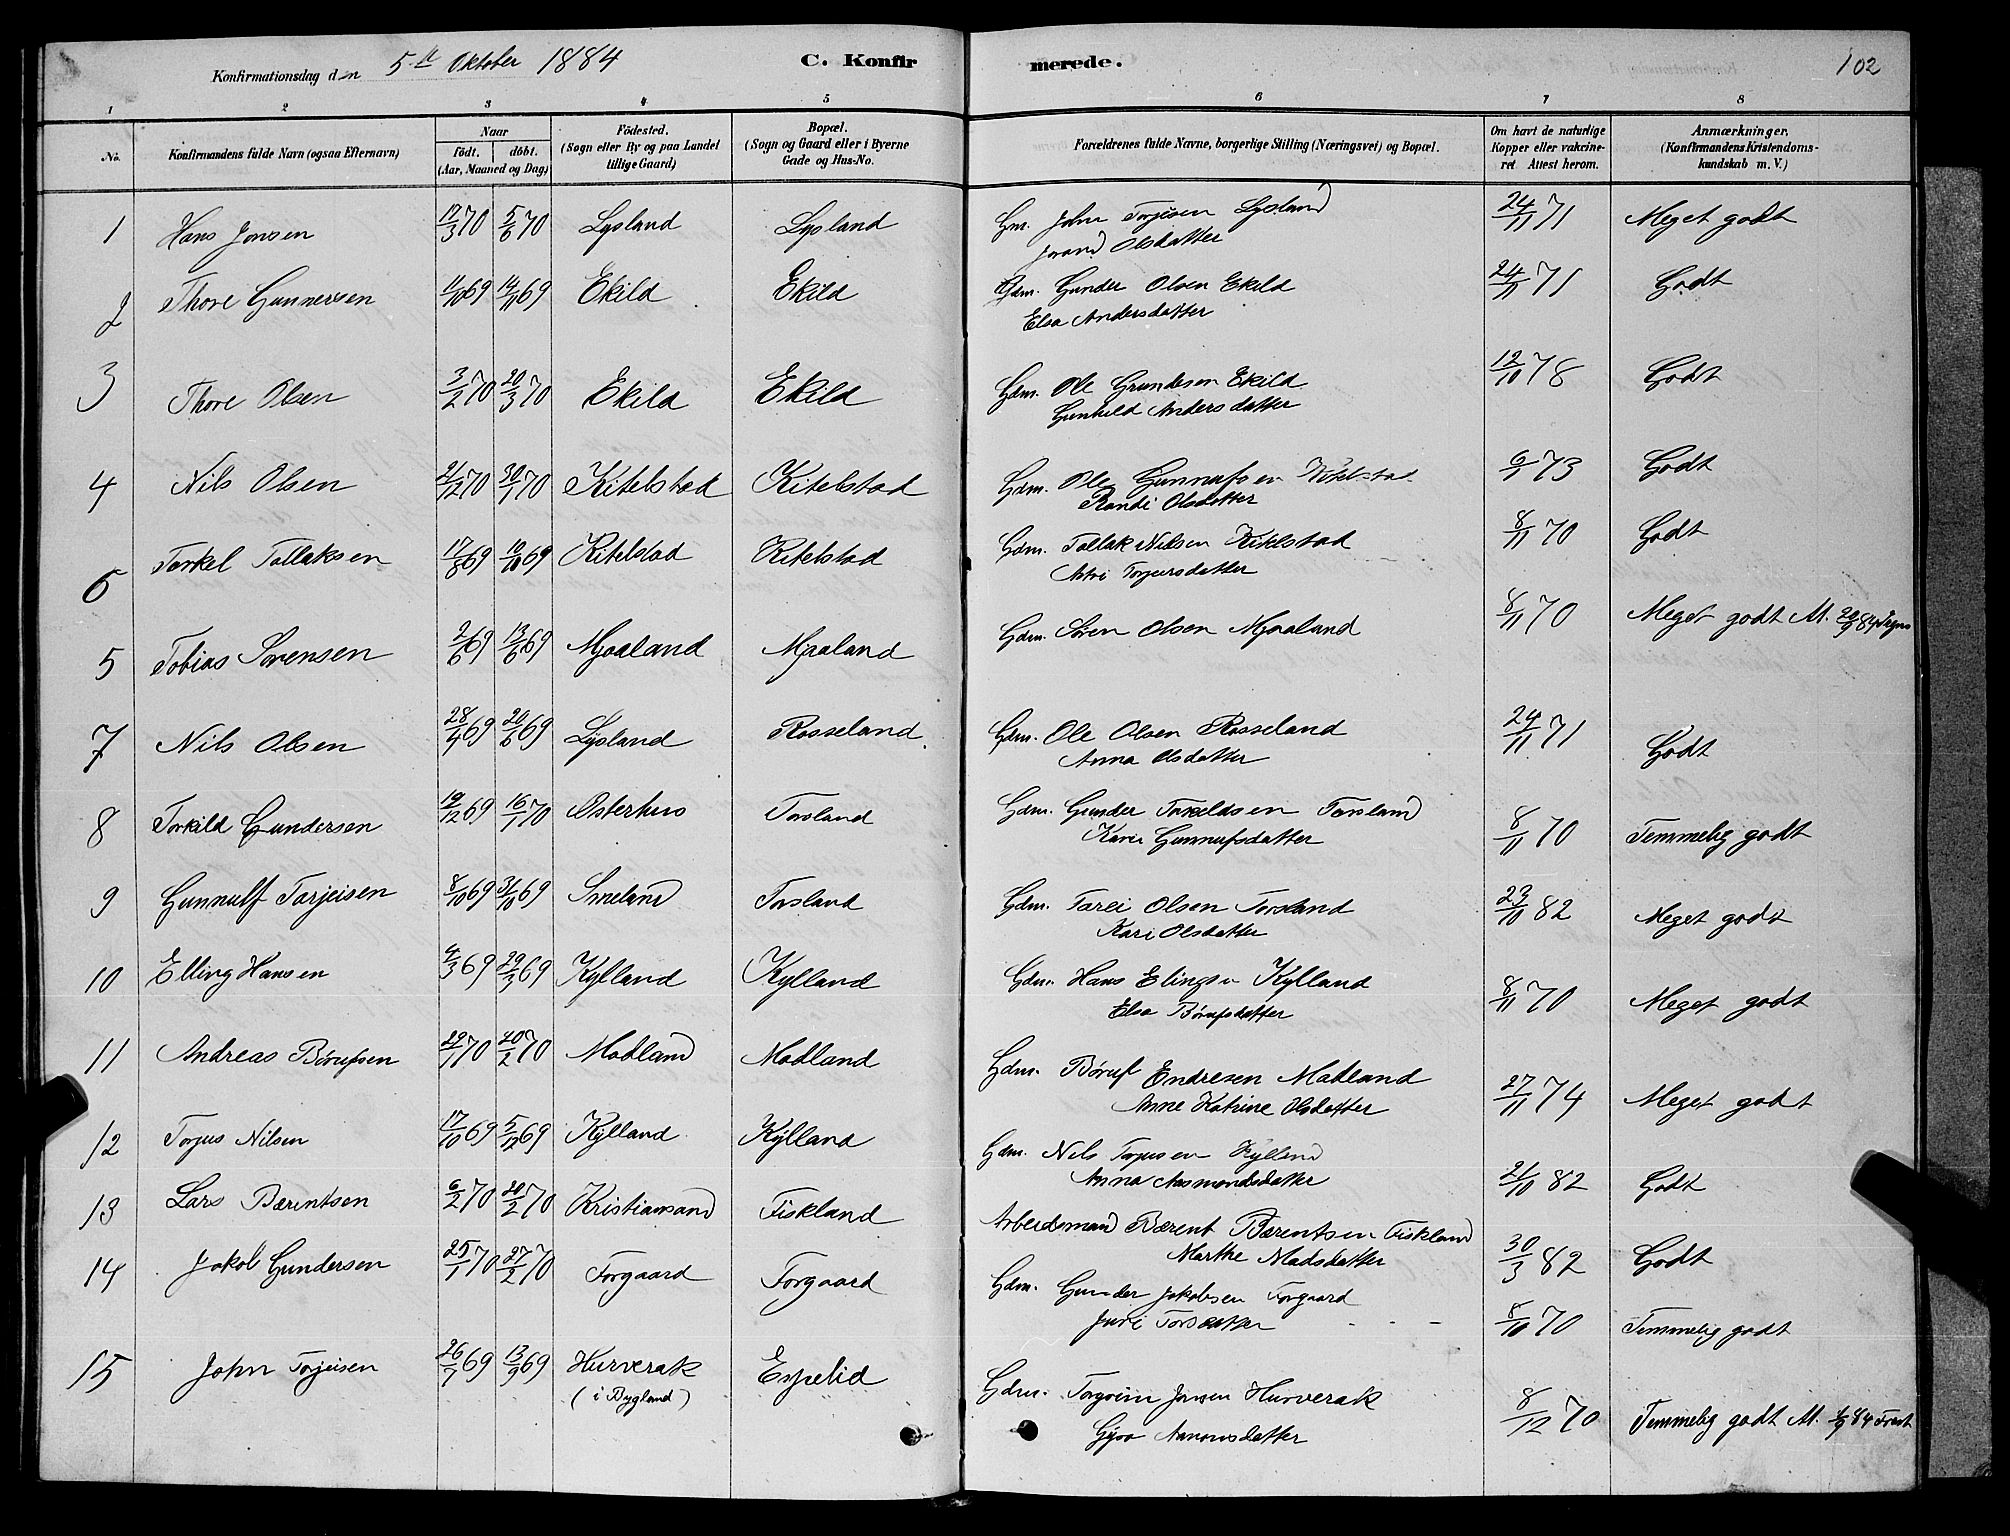 Konfirmationsdag den 5te Oktober 1884 C. Konfirmerede. 102
1 2 3 4 5 6 7 8
No. Konfirmandens fulde Navn (ogsaa Efternavn) Naar födt. döbt. (Aar, Maaned og Dag) Födested. (Sogn eller By og paa Landet tillige Gaard) Bopæl. (Sogn og Gaard eller i Byerne Gade og Hus-No. Forældrenes fulde Navne, borgerlige Stilling (Næringsvei) og Bopæl. Om havt de naturlige Kopper eller vakcineret Attest herom. Anmærkninger. (Konfirmandens Kristendomskundskab m. V.)
1 Hans Jonsen 17/3 70 5/6 70 Lysland Lysland Gm. John Torjesen Lysland 24/11 71 Meget godt
Jorand Olsdatter
2 Thore Gunnersen 11/10 69 14/11 69 Ekild Ekild Gdm. Gunder Olsen Ekild 24/11 71 Godt
Elsa Andersdatter
3 Thore Olsen 3/2 70 20/3 70 Ekild Ekild Gdm. Ole Grundesen Ekild 12/10 78 Godt
Gunhild Andersdatter
4 Nils Olsen 21/12 70 30/1 70 Kitelstad Kitelstad Gdm. Ole Gunnufsen Kitelstad 6/1 73 Godt
Randi Olsdatter
6 Torkel Tallaksen 17/8 69 10/10 69 Kitelstad Kitelstad Gdm. Tallak Nilsen Kitelstad 8/11 70 Godt
Torjursdatter
5 Tobias Sørensen 2/6 69 13/6 69 Mjaaland Mjaaland Gdm. Søren Olsen Mjaaland 8/11 70 Meget godt M. 22/9 84
7 Nils Olsen 28/4 69 20/6 69 Lysland Rosseland Gdm. Ole Olsen Rosseland 24/11 71 Godt
Anna Olsdatter
8 Torkild Gundersen 19/12 69 16/1 70 Østerhus Torsland Gdm. Gunder Torkeldsen Torsland 8/11 70 Temmelig godt
Kari Gunnufsdatter
9 Gunnulf Tarjeisen 8/10 69 31/10 69 Smeland Torsland Gdm. Tarei Olsen Torsland 23/10 82 Meget godt
Kari Olsdatter
10 Elling Hansen 4/3 69 29/3 69 Kylland Kylland Gdm. Hans Elingsn Kylland 8/11 70 Meget godt
Elsa Børufsdatter
11 Andreas Børufsen 29/1 70 20/2 70 Modland Modland Gdm. Børuf Endresen Madland 27/11 74 Meget godt
Anne Katrine Olsdatter
12 Torjus Nilsen 17/10 69 5/12 69 Kylland Kylland Gdm. Nils Torjusen Kylland 21/10 82 Godt
Anna Aasmondsdatter
13 Lars Bærentsen 6/2 70 20/2 70 Kristiansand Fiskland Arbeidsmand Bærent Bærentsen Fiskland 30/3 82 Godt
Marthe Madsdatter
14 Jakob Gundersen 25/1 70 27/2 70 Forgaard Forgaard Gdm. Gunder Jakobsen Forgaard 8/10 70 Temmelig godt
Juri Torsdatter
15 John Torjeisen 26/7 69 13/9 69 Hurverak (i Bygland) Espelid Gdm. Torgrim Jonsen Hurverak 8/12 70 Temmelig godt M.
Gyro Aanonsdatter